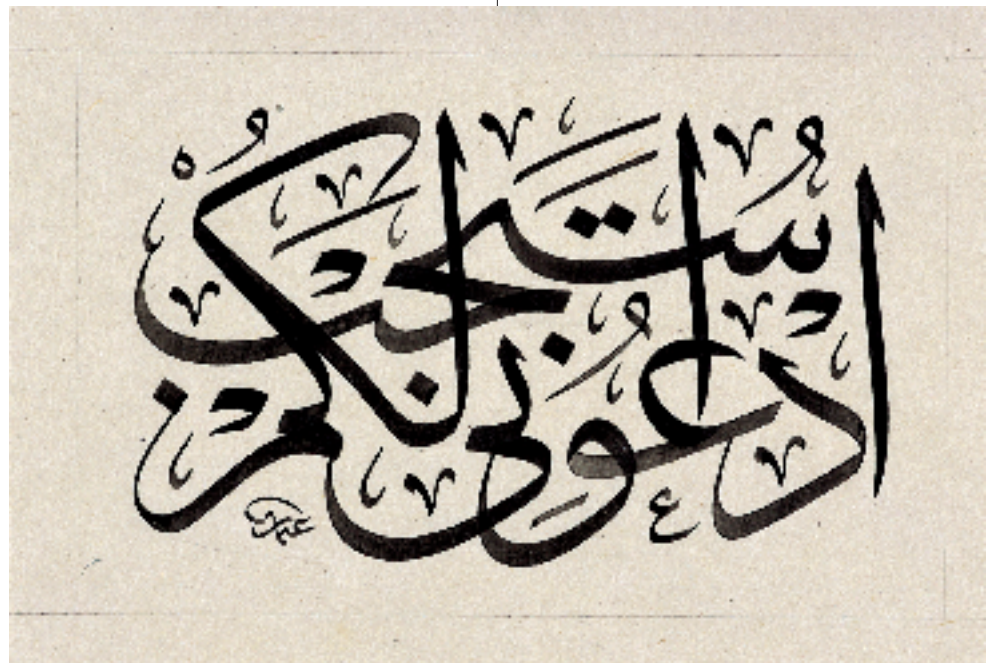 ادعوني أستجب لكم